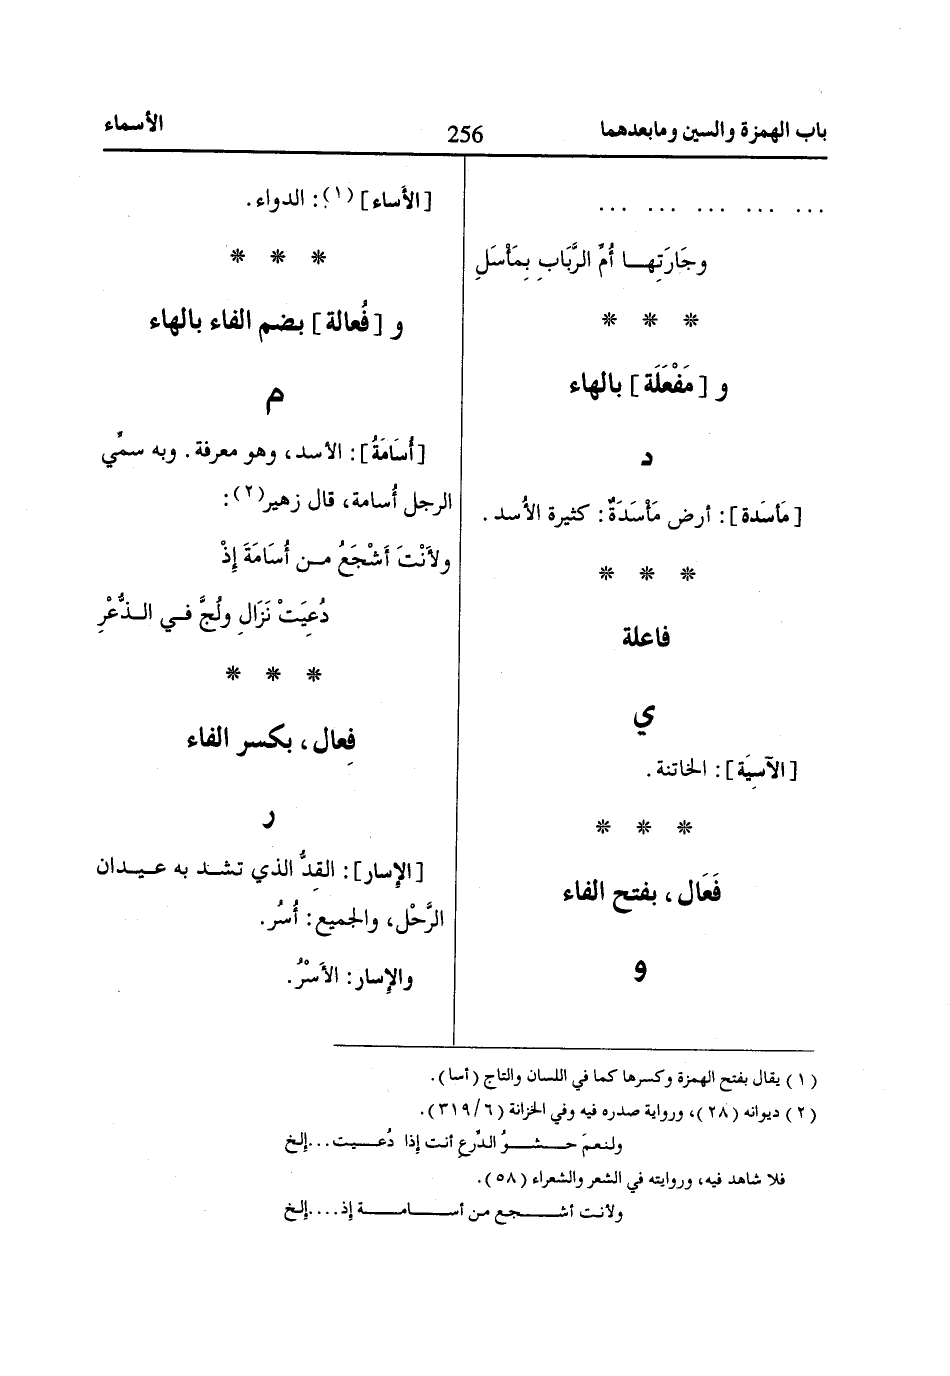 باب الهمزة والسين ومابعدهما
256
الأسماء
... ... ... ... ...
وجَارَتِهـــا أُمِّ الرَّبَابِ بِمَأْسَلِ
* * *
و [مَفْعَلَة] بالهاء
د
[مَأسَدة]: أرض مَأْسَدَةٌ: كثيرة الأُسد.
* * *
فاعلة
ي
[الآسيَة]: الخاتنة.
* * *
فَعَال، بفتح الفاء
و
[الأَساء] (١): الدواء.
* * *
و [فُعالة] بضم الفاء بالهاء
م
[أُسَامَةُ]: الأسد، وهو معرفة. وبه سمِّي
الرجل أُسامة، قال زهير(٢):
ولأَنْتَ أَشْجَعُ مــن أُسَامَةَ إِذْ
دُعِيَتْ نَزَالِ ولُجَّ فــي الــذُّعْرِ
* * *
فِعال، بكسر الفاء
ر
[الإِسار]: القِدُّ الذي تشــد به عيــدان
الرَّحْل، والجميع: أُسُر.
والإِسار: الأَسْرُ.
(١) يقال بفتح الهمزة وكسرها كما في اللسان والتاج (أسا).
(٢) ديوانه (٢٨)، ورواية صدره فيه وفي الخزانة (٣١٩/٦).
ولنعمَ حـــشـــوُ الدِّرعِ أنت إذا دُعــيت...إلخ
فلا شاهد فيه، وروايته في الشعر والشعراء (٥٨).
ولأنت أشـــجع من أســـامـــة إذ....إلخ